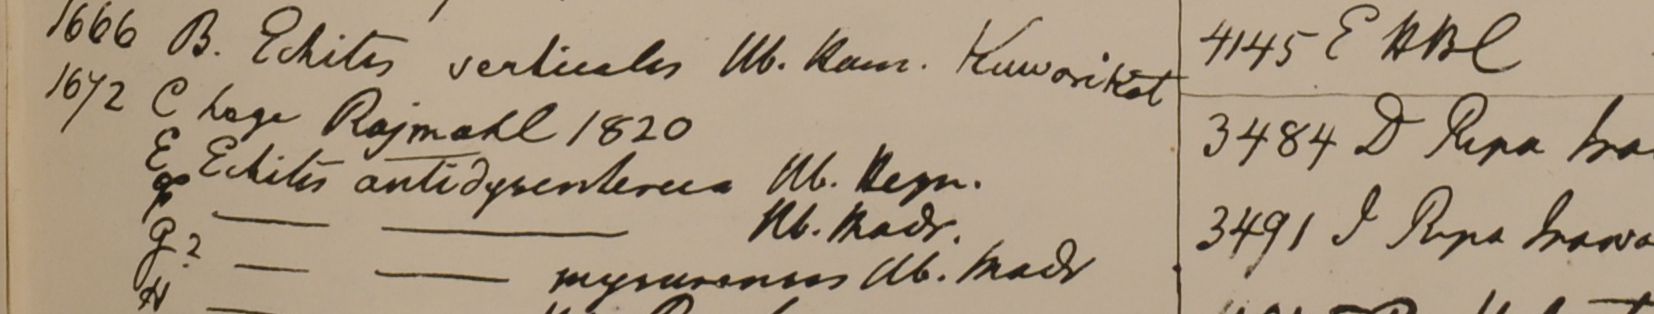 1666 B. Echites verticulis Hb. Ham. Kuworikat
1672 C hage Rajmahl 1820
E Echites antidysenterica Hb. Heyn.
F — — Hb. Madr.
G? — — mysurensis Hb. Madr
H —
4145 E HBC
3484 D Ripa Irra
3491 I Ripa Irrawa